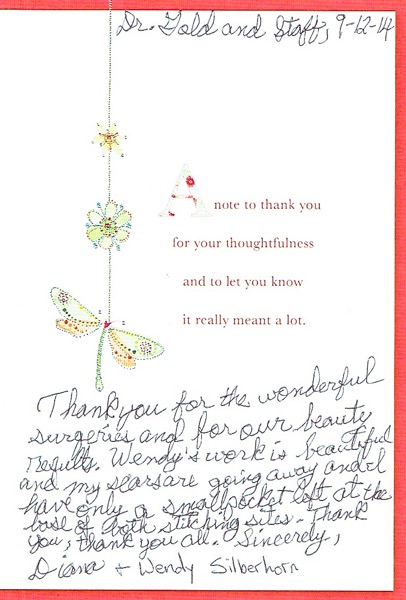 Dr. Gold and Staff, 9-12-14
A note to thank you
for your thoughtfulness
and to let you know
it really meant a lot.
Thank you for the wonderful
surgeries and for our beauty
results. Wendy's work is beautiful
and my scars are going away and I
have only a small pocket left at the
base of both stitching sites. Thank
you, thank you all. Sincerely,
Diana + Wendy Silberhorn